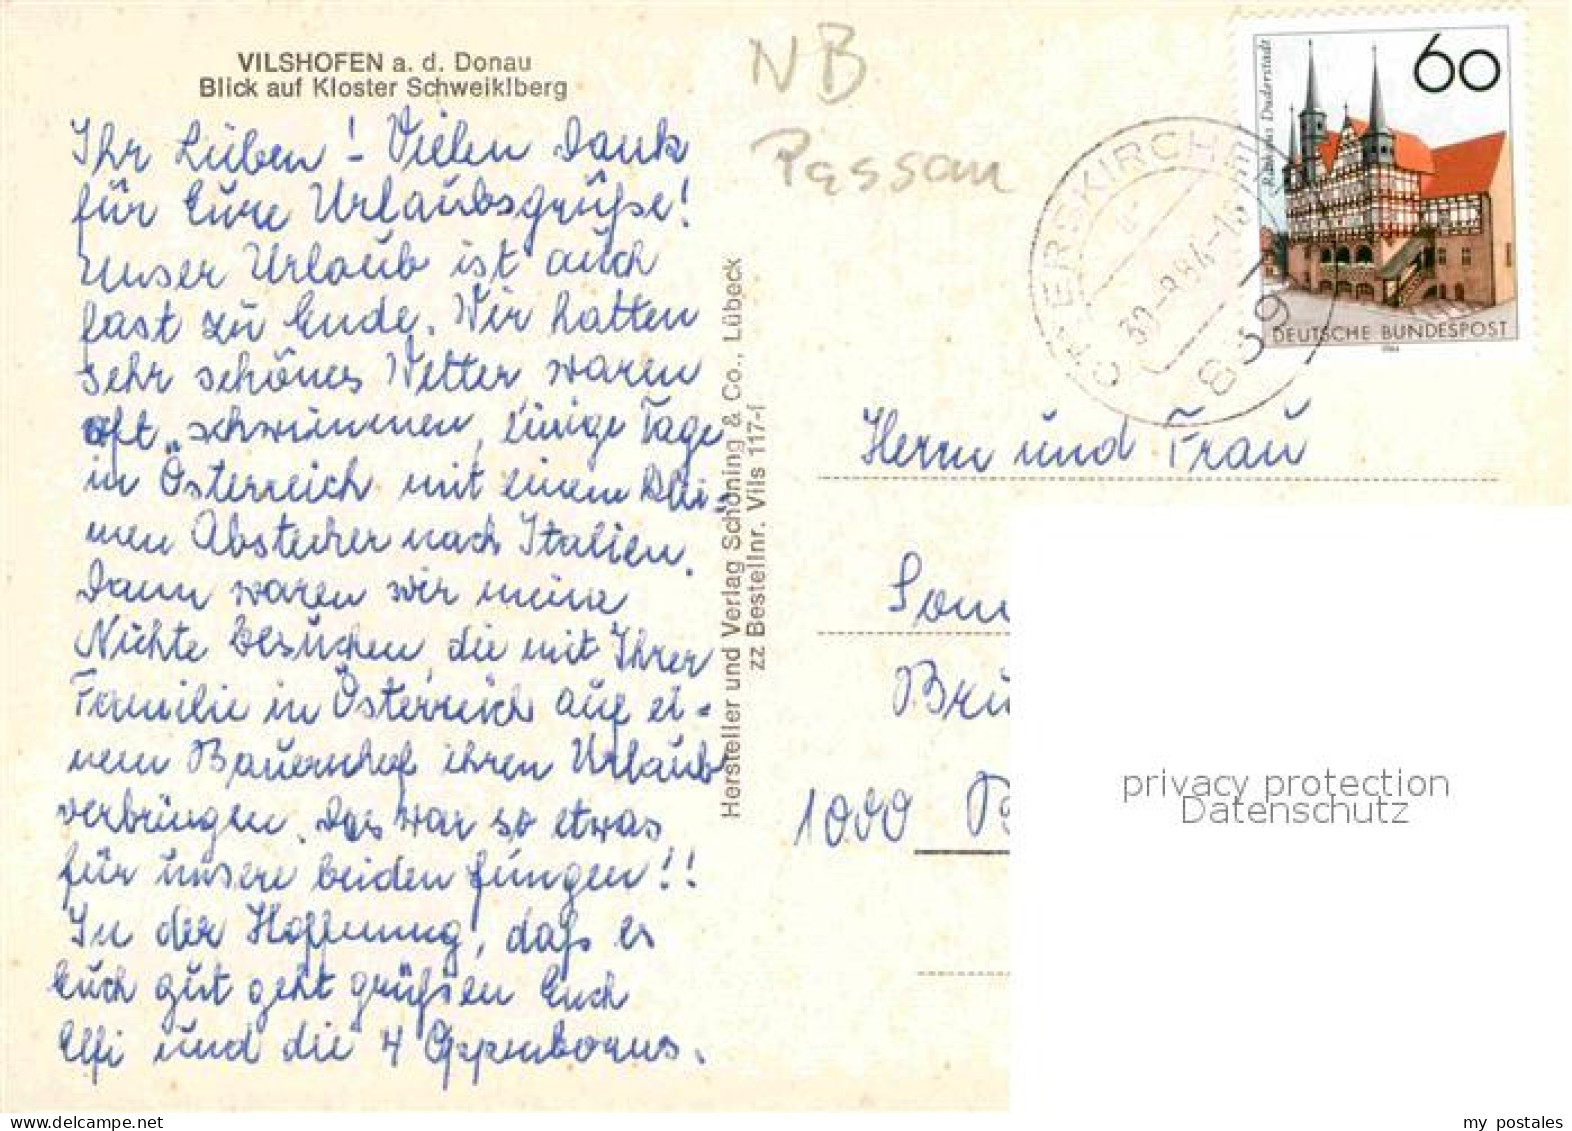 VILSHOFEN a. d. Donau
Blick auf Kloster Schweiklberg
Ihr Lieben! Vielen Dank
für Eure Urlaubsgrüße!
Unser Urlaub ist auch
fast zu Ende. Wir hatten
sehr schönes Wetter, waren
oft schwimmen, einige Tage
in Österreich mit einem klei-
nen Abstecher nach Italien.
Dann waren wir meine
Nichte besuchen, die mit Ihrer
Familie in Österreich auf ei-
nem Bauernhof ihren Urlaub
verbringen. Das war so etwas
für unsere beiden Jungen!!
In der Hoffnung, daß es
Euch gut geht grüßen Euch
Elfi und die 4 Oppenborns.
Hersteller und Verlag Schöning & Co., Lübeck
zz Bestellnr. Vils 117-f
NB
Passau
60
Rathaus Duderstadt
DEUTSCHE BUNDESPOST
1984
ERSKIRCH
30-8.84-16
839
Herrn und Frau
Som
Brü
1000 B
privacy protection
Datenschutz
my postales